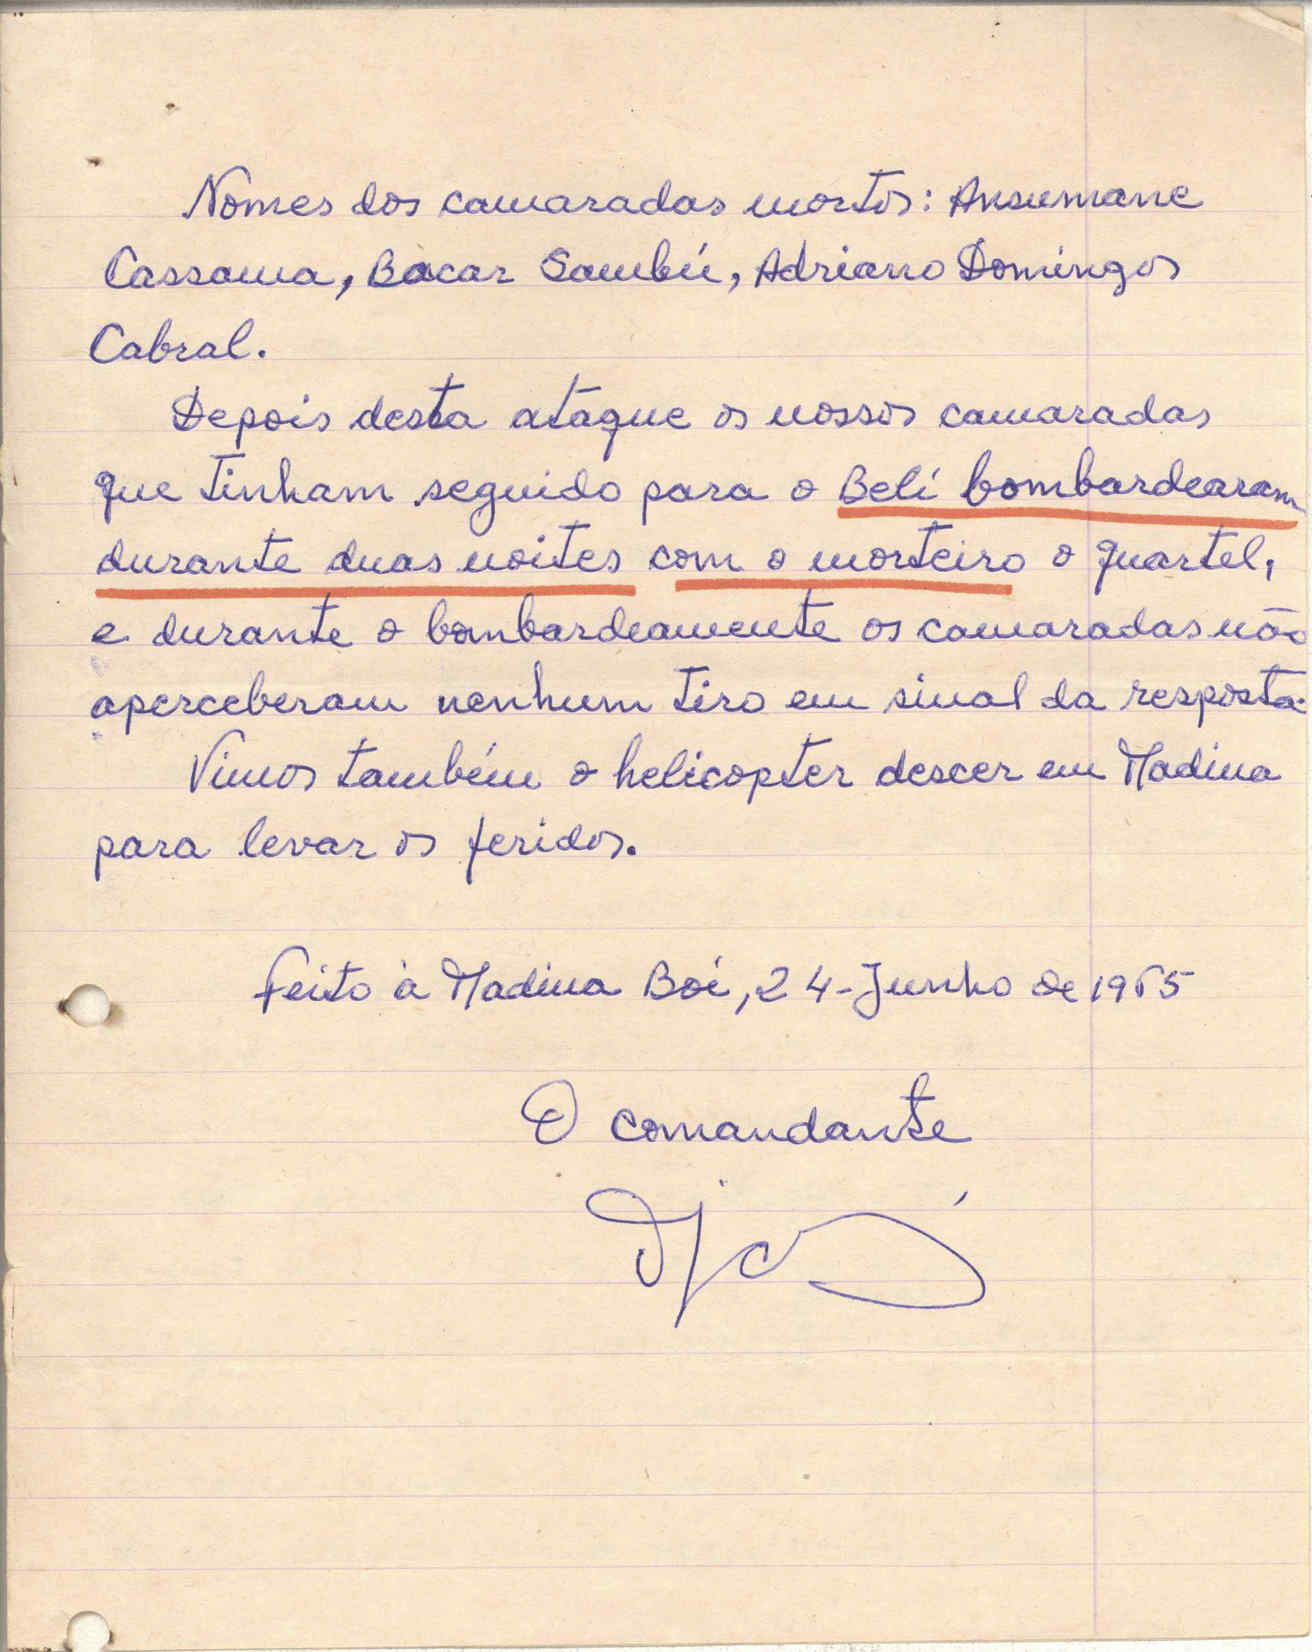 Nomes dos camaradas mortos: Ansumane
Cassama, Bacar Sambú, Adriano Domingos
Cabral.
Depois desta ataque os nossos camaradas
que tinham seguido para o Beli bombardearam
durante duas noites com o morteiro o quartel,
e durante o bombardeamente os camaradas não
aperceberam nenhum tiro em sinal da resposta.
Vimos também o helicopter descer em Madina
para levar os feridos.
Feito à Madina Boé, 24-Junho de 1965
O comandante